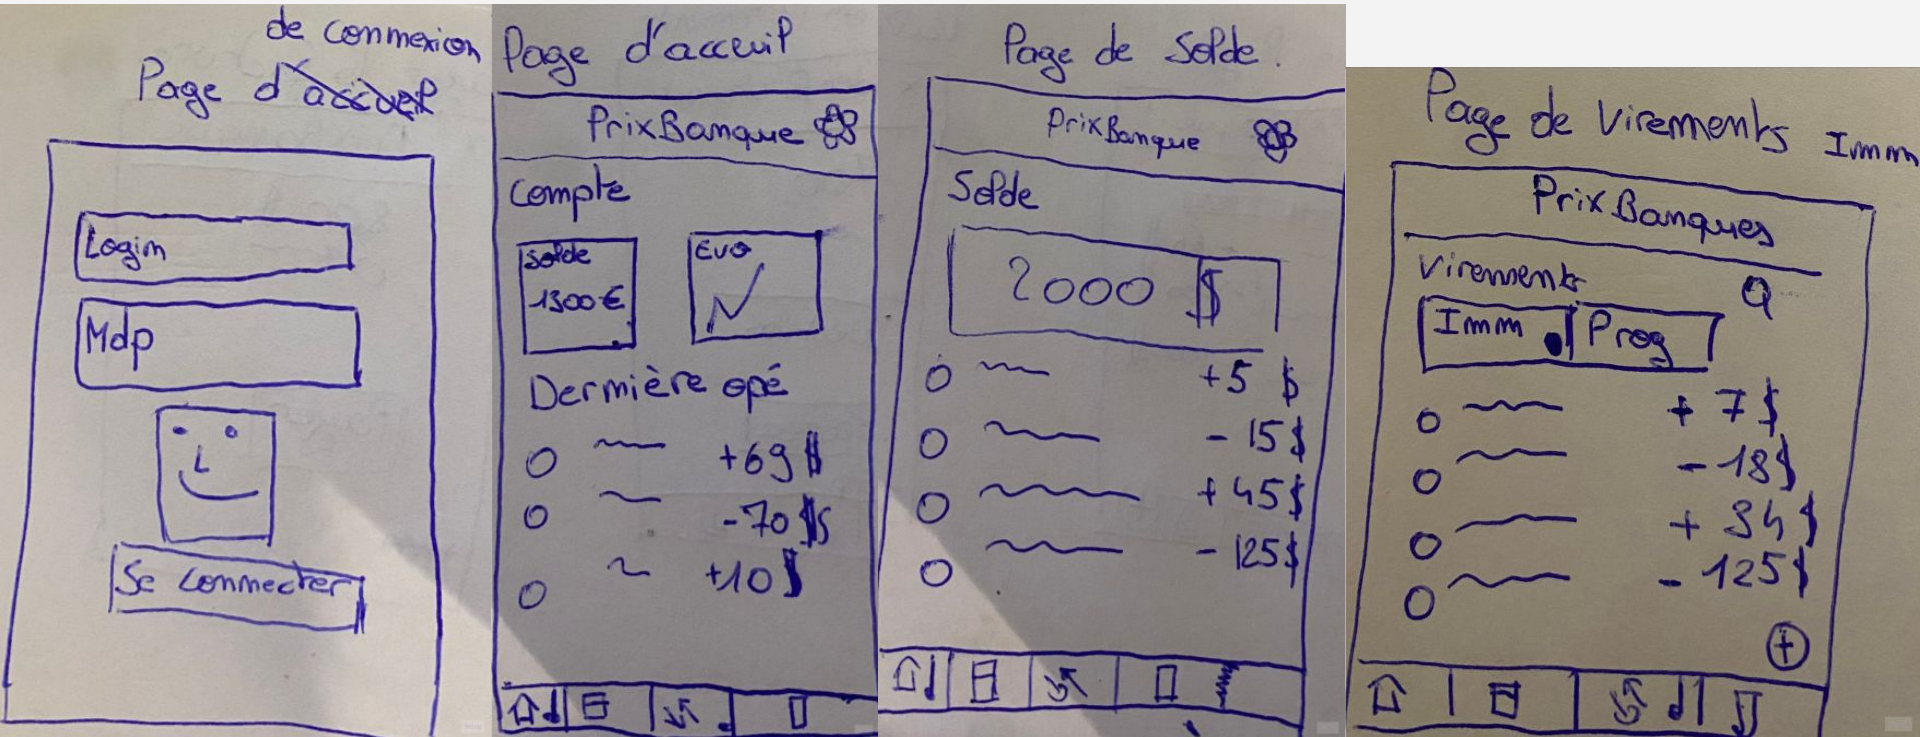 de connexion
Page d'accueil
Login
Mdp
Se connecter
Page d'acceuil
PrixBanque
Compte
Solde
1300 €
Evo
Dernière opé
+69 $
-70 $
+10 $
Page de Solde.
PrixBanque
Solde
2000 $
+5 $
- 15 $
+ 45 $
- 125 $
Page de Virements Imm
PrixBanques
Virements
Imm
Prog
+ 7 $
- 18 $
+ 34 $
- 125 $